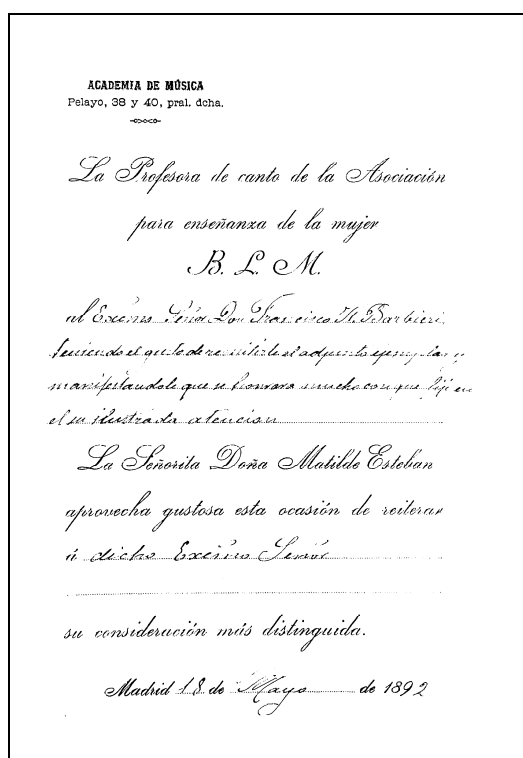 ACADEMIA DE MÚSICA
Pelayo, 38 y 40, pral. dcha.
La Profesora de canto de la Asociación
para enseñanza de la mujer
B. L. M.
al Excmo Señor Don Francisco A. Barbieri,
teniendo el gusto de remitirle el adjunto ejemplar y
manifestandole que se honrara mucho con que fije en
el su ilustrada atencion
La Señorita Doña Matilde Esteban
aprovecha gustosa esta ocasión de reiterar
á dicho Excmo Señor
su consideración más distinguida.
Madrid 18 de Mayo de 1892